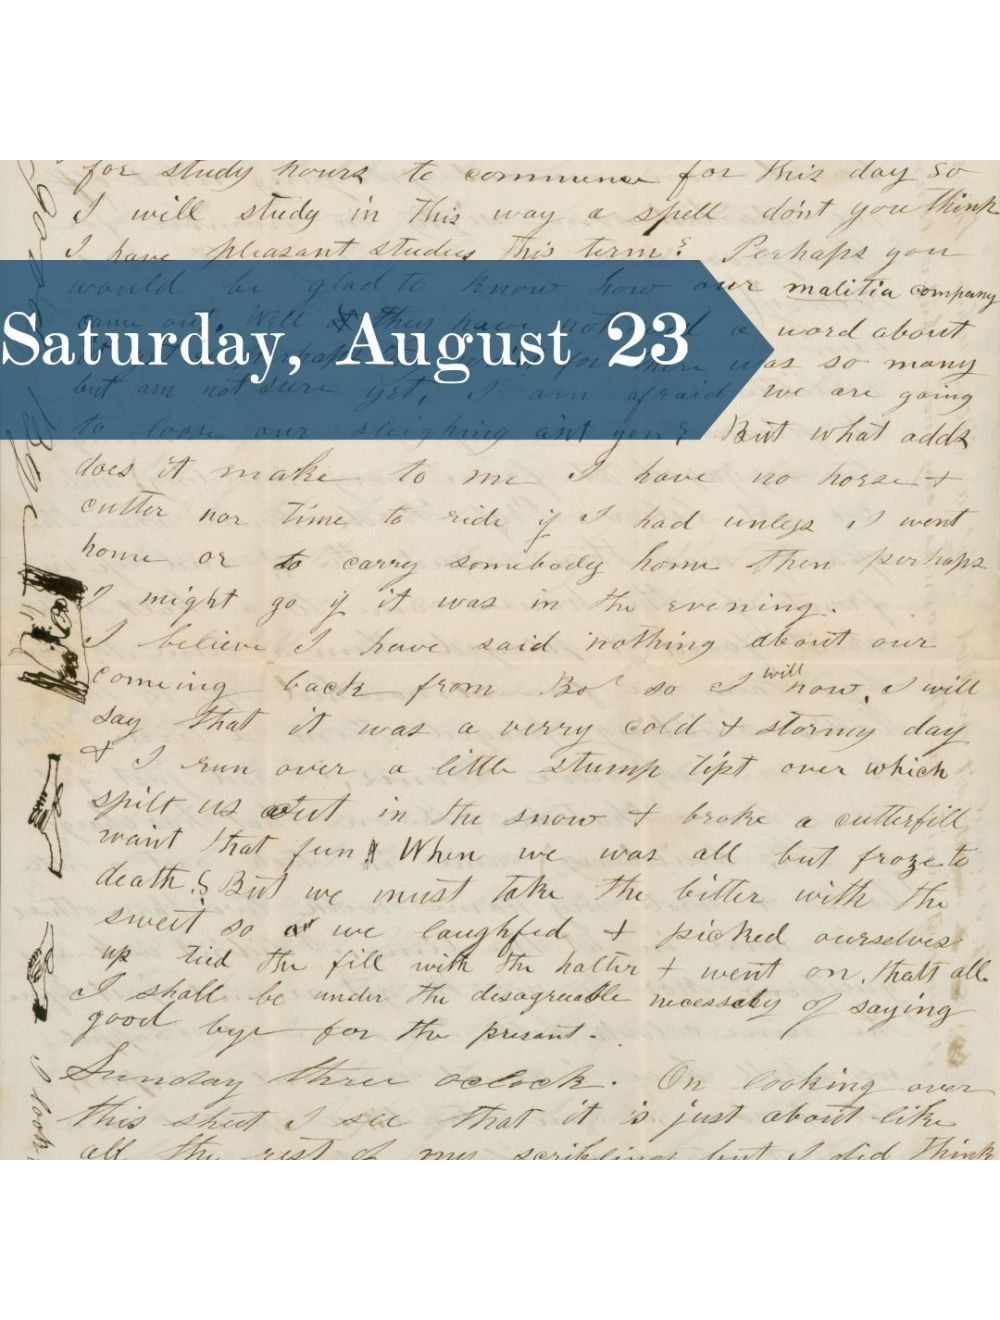 for study hours to commence for this day so
I will study in this way a spell don't you think
I have pleasant studies this term? Perhaps you
would be glad to know how our malitia company
came out. Well they have not a word about
Saturday, August 23
perhaps you there was so many
but am not sure yet, I am afraid we are going
to loose our sleighing aint you? But what adds
does it make to me I have no horse +
cutter nor time to ride if I had unless I went
home or to carry somebody home then perhaps
I might go if it was in the evening.
I believe I have said nothing about our
comeing back from Bo^l so I will now. I will
say that it was a verry cold + stormy day
+ I run over a little stump tipt over which
spilt us out in the snow + broke a cutterfill
want that fun When we was all but froze to
death? But we must take the bitter with the
sweet so we laughfed + picked ourselves
up tied the fill with the halter + went on, thatt all.
I shall be under the disagreeable necessaty of saying
good bye for the present.
Sunday three oclock. On looking over
this sheet I see that it is just about like
all the rest of my scribling but I did think
I look